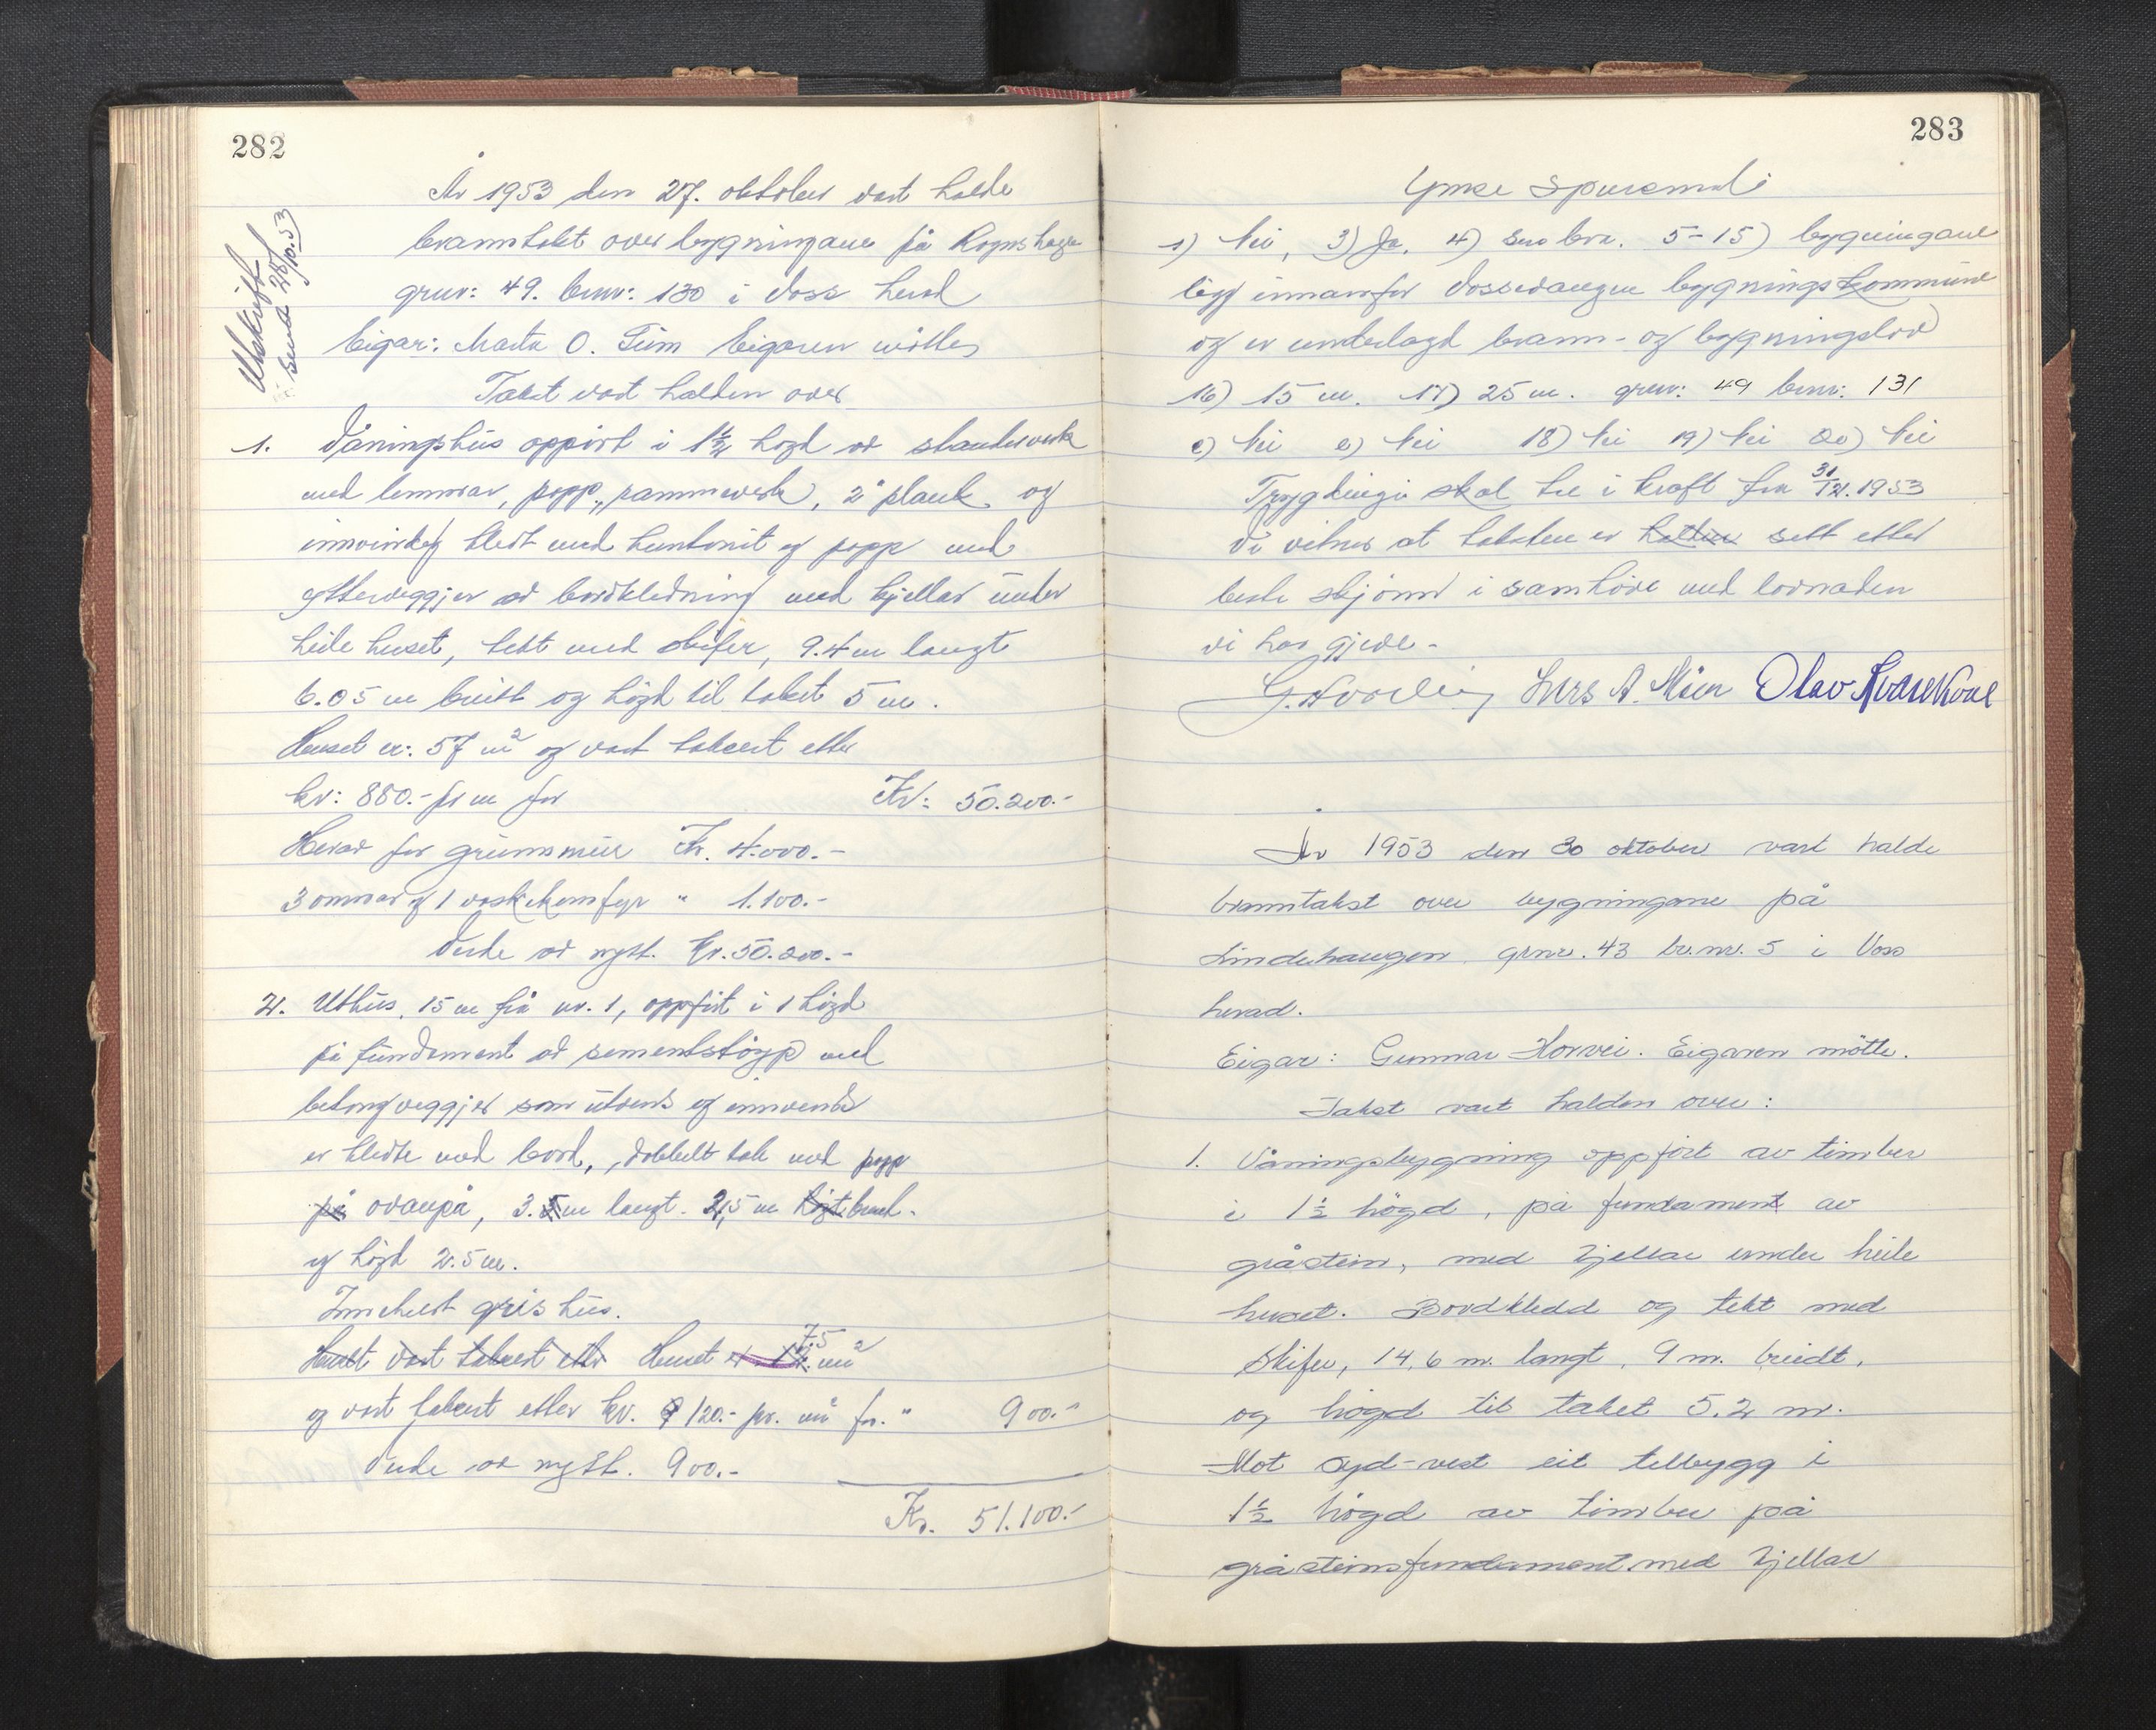 282
Utskrift
send 28/10.53
År 1953 den 27. oktober vart halde
branntakst over bygningane på Rognshaga
grnr: 49. brnr: 130 i Voss herad
Eigar: Marta O. Finn Eigaren møtte,
Takst vart halden over
1. Våningshus oppført i 1½ høgd av stenderverk
med lemmar, papp, rammeverk, 2" plank og
innvindes kledt med huntonit og papp med
ytterveggjer av bordkledning med kjellar under
heile huset, tekt med skifer, 9.4 m langt
6.05 m breitt og høgd til taket 5 m.
Huset er: 57 m² og vart taksert etter
kr: 880.- pr m for Kr: 50.200.-
Herav for grunnmur Kr. 4.000.-
3 omnar og 1 vaskekomfyr " 1.100.-
Verde av nytt. Kr. 50.200.-
2. Uthus, 15 m frå nr. 1, oppført i 1 høgd
på fundament av sementstøyp med
betongveggjer som utvends og innvends
er kledte med bord, dobbelt tak med papp
på ovanpå, 3. m langt. 2,5 m høgt breidt.
og høgd 2.5 m.
Inneheld grishus.
Huset vart taksert etter Huset er 7.5 m²
og vart taksert etter kr. 120.- pr. m² for. " 900.-
Verde av nytt. 900.-
Kr. 51.100.-
283
Ymse spursmål:
1) Nei, 3) Ja, 4) Sers bra. 5-15) bygningane
ligg innanfor Vossevangen bygningskommune
og er underlagd brann- og bygningslov
16) 15 m. 17) 25 m. grnr: 49 brnr: 131
c) Nei e) Nei 18) Nei 19) Nei 20) Nei
Trygdingi skal tre i kraft frå 31/12.1953
Vi vitnar at taksten er halden sett etter
beste skjønn i samhøve med lovnaden
vi har gjeve.
Lars A. Møen Olav Kvarekval
År 1953 den 30 oktober vart halde
branntakst over bygningane på
Lindehaugen grnr. 43 br.nr. 5 i Voss
herad.
Eigar: Gunnar Horvei. Eigaren møtte.
Takst vart halden over:
1. Våningsbygning oppført av timber
i 1½ høgd, på fundament av
gråstein, med kjellar under heile
huset. Bordkledd og tekt med
skifer, 14,6 m. langt, 9 m. breidt,
og høgd til taket 5.2 m.
Mot syd-vest eit tilbygg i
1½ høgd av timber på
gråsteinsfundament med kjellar